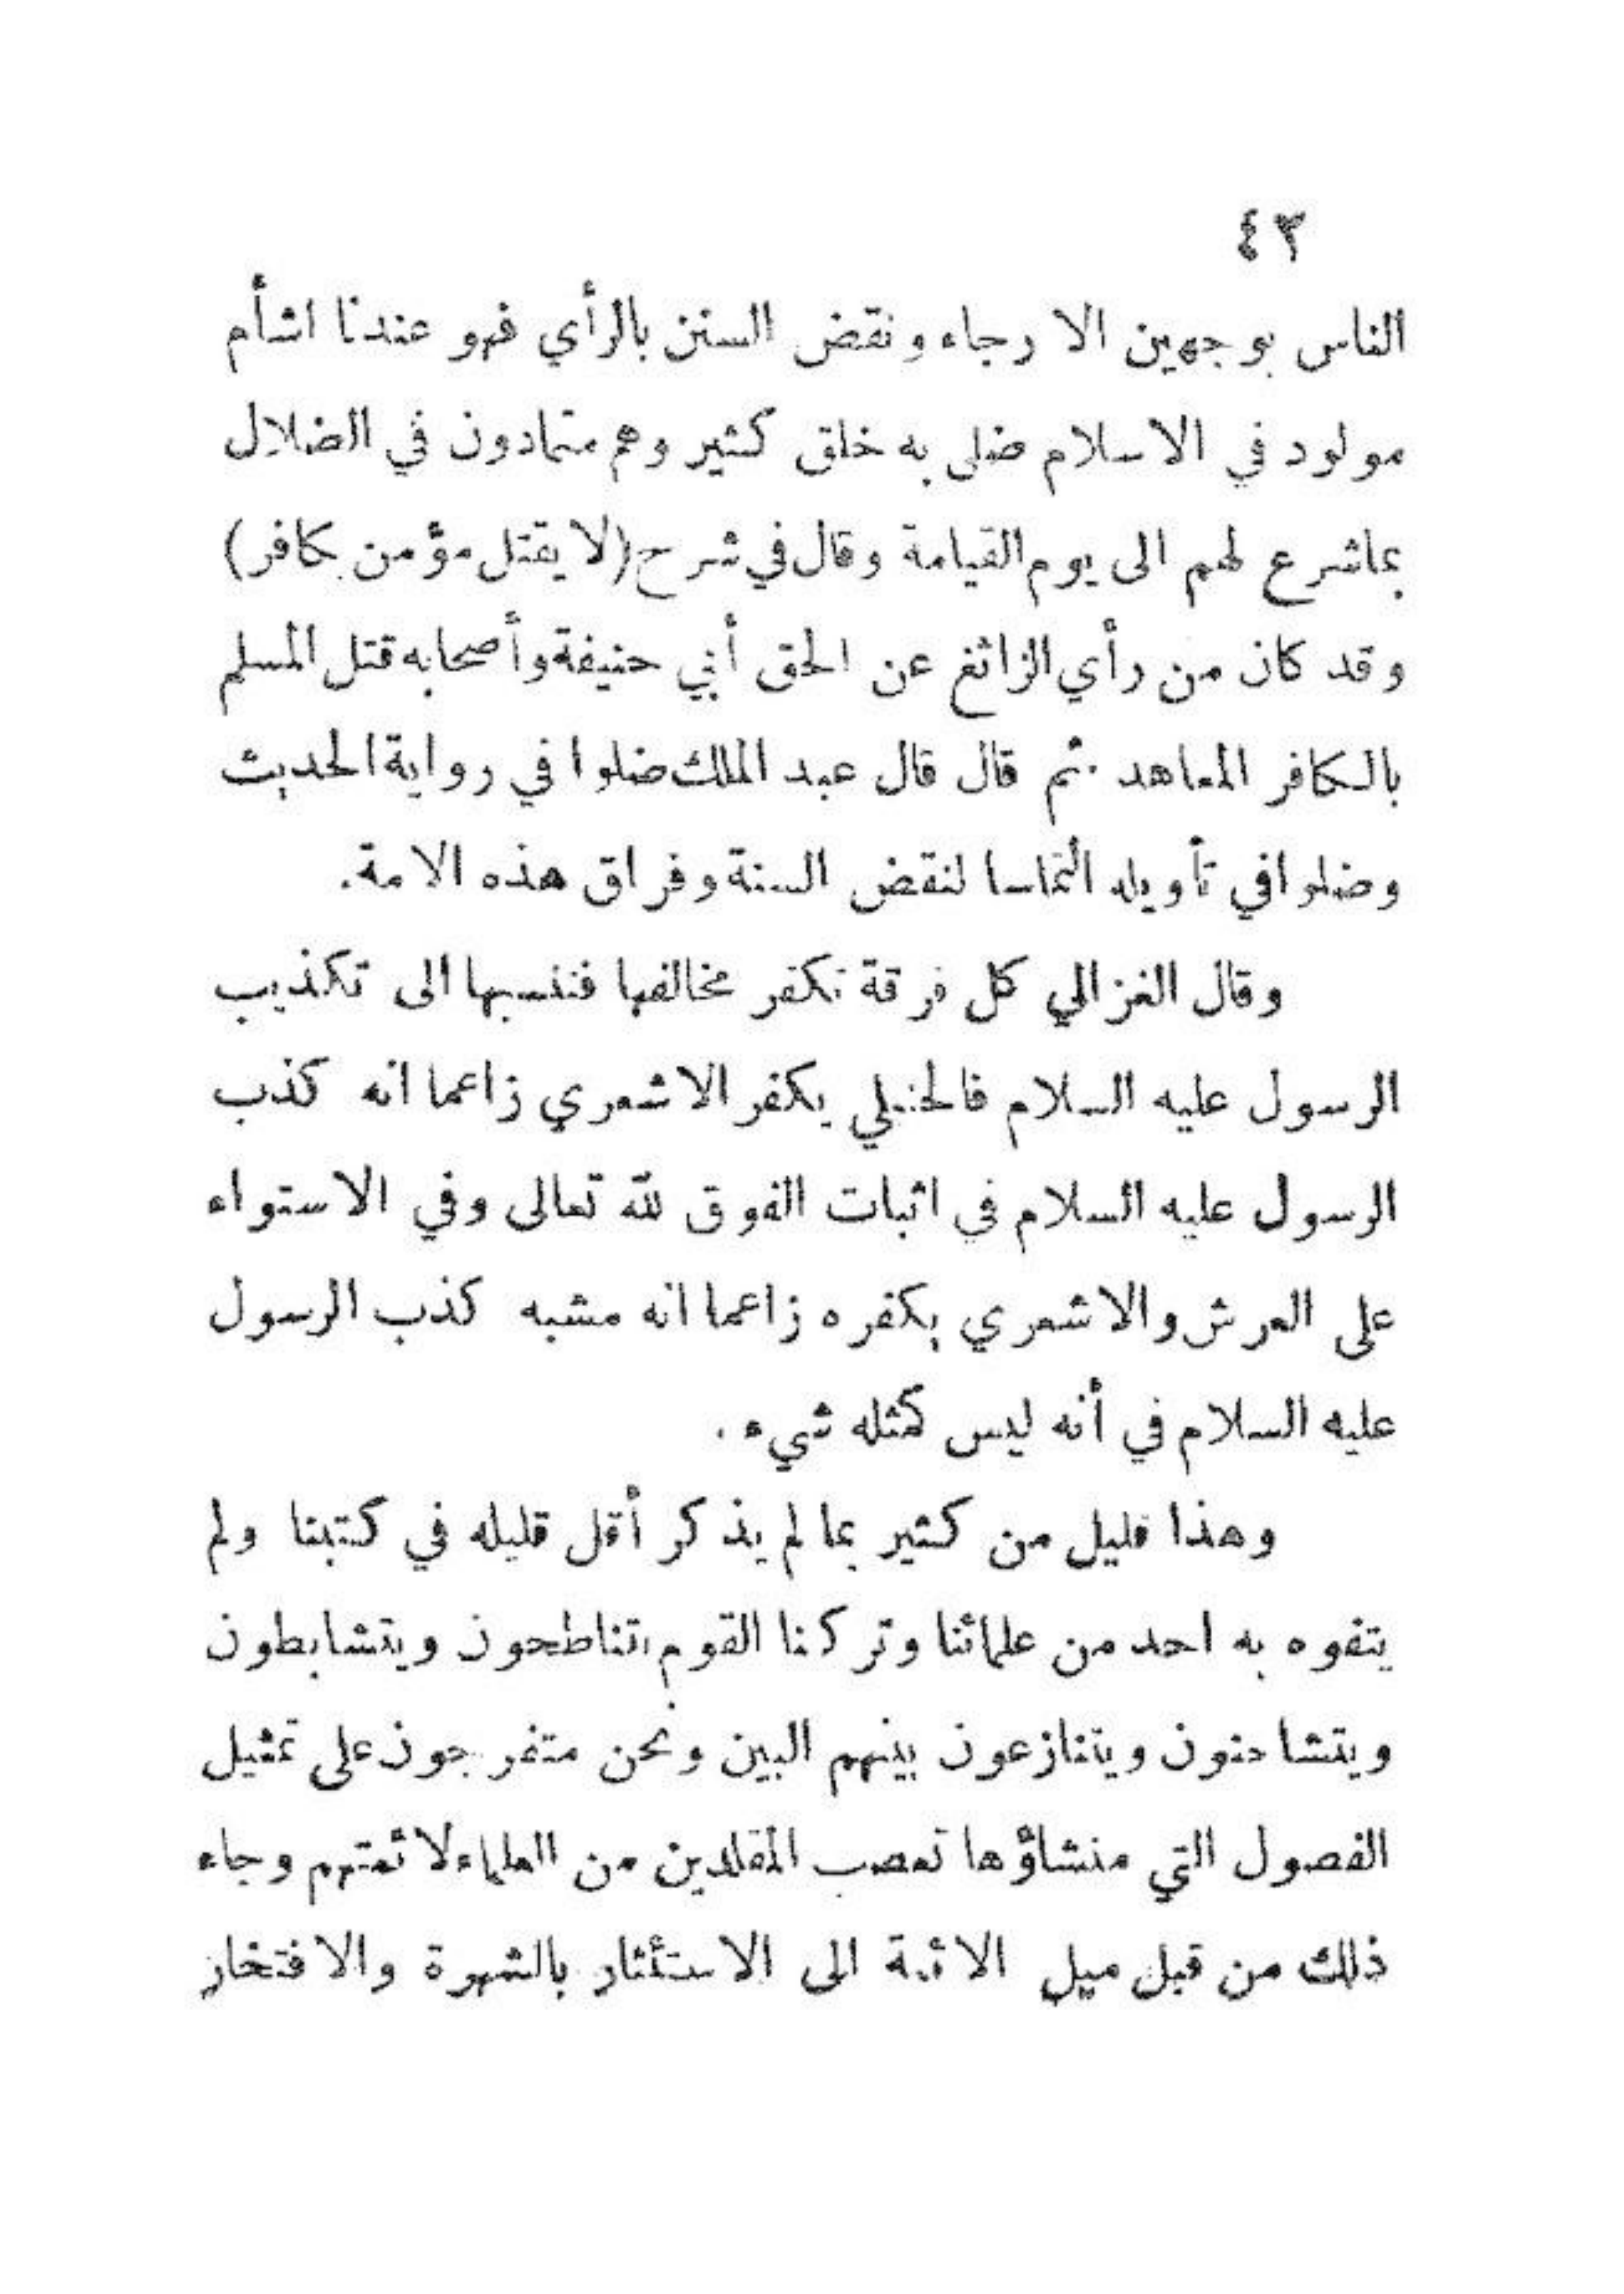 ٤٣
الناس بوجهين الارجاء ونقض السنن بالرأي فهو عندنا اشأم
مولود في الاسلام ضل به خلق كثير وهم متمادون في الضلال
بما شرع لهم الى يوم القيامة وقال في شرح (لا يقتل مؤمن بكافر)
وقد كان من رأي الزائغ عن الحق أبي حنيفة وأصحابه قتل المسلم
بالكافر المعاهد ثم قال قال عبد الملك ضلوا في رواية الحديث
وضلوا في تأويله التماسا لنقض السنة وفراق هذه الامة.
وقال الغزالي كل فرقة تكفر مخالفها فتنسبها الى تكذيب
الرسول عليه السلام فالحنبلي يكفر الاشعري زاعما انه كذب
الرسول عليه السلام في اثبات الفوق لله تعالى وفي الاستواء
على العرش والاشعري يكفره زاعما انه مشبه كذب الرسول
عليه السلام في أنه ليس كمثله شيء .
وهذا قليل من كثير مما لم يذكر أقل قليله في كتبنا ولم
يتفوه به احد من علمائنا وتركنا القوم يتناطحون ويتشابطون
ويتشاحنون ويتنازعون بينهم البين ونحن متفرجون على تمثيل
الفصول التي منشاؤها تعصب المقلدين من العلماء لائمتهم وجاء
ذلك من قبل ميل الائمة الى الاستئثار بالشهرة والافتخار